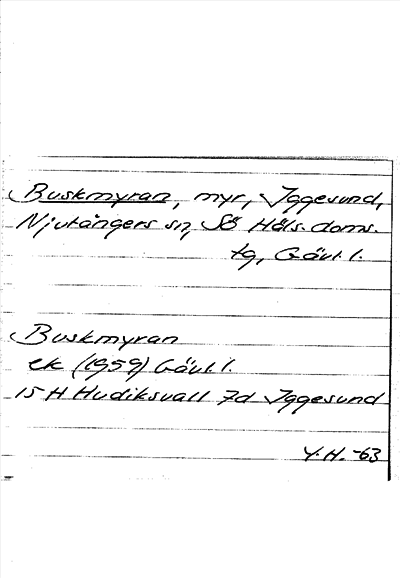 Buskmyran, myr, Iggesund,
Njutångers sn, Sö Häls. doms.
tg, Gävl. l.
Buskmyran
ek (1959) Gävl. l.
15 H Hudiksvall 7d Iggesund
Y. H. -63